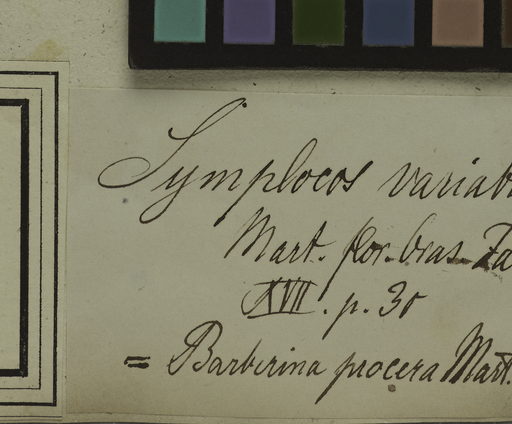 Symplocos variab
Mart. flor. bras. Fa
XVII. p. 30
= Barberina procera Mart.